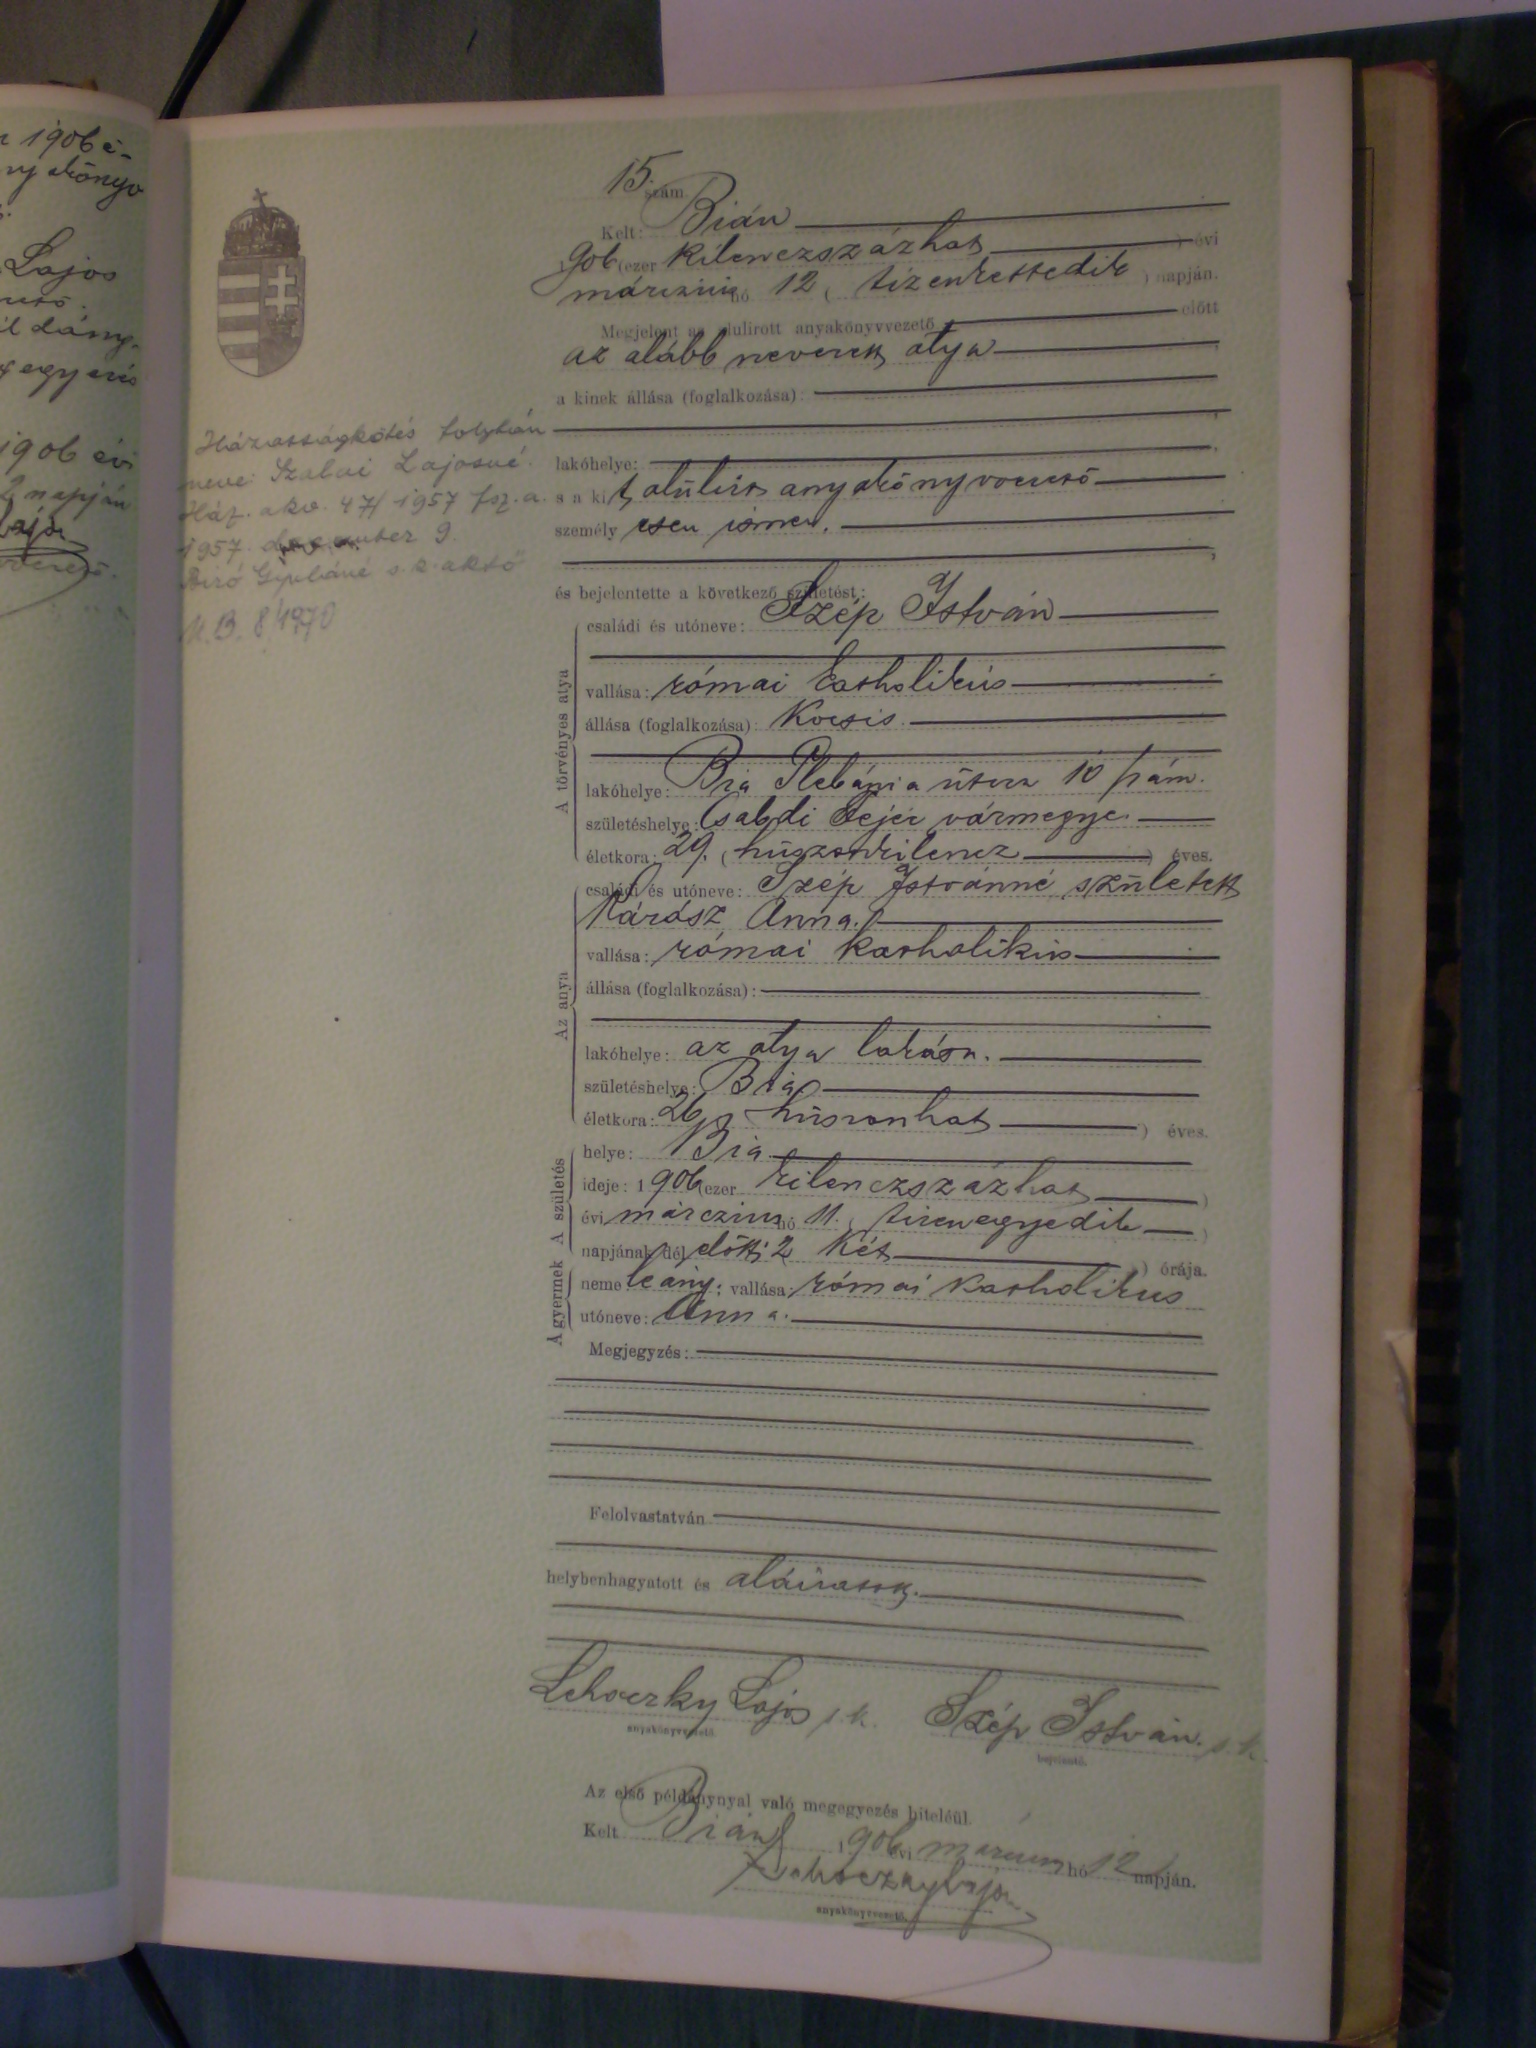 1906 é-
Lajos
1906 évi
napján
15. szám.
Kelt: Bián
1906 (ezer kilenczszázhat ) évi
márczius hó 12 ( tizenkettedik ) napján.
Megjelent az alulirott anyakönyvvezető előtt
az alább nevezett atya
a kinek állása (foglalkozása):
lakóhelye:
s a kit alulirt anyakönyvvezető
személyesen ismer.
és bejelentette a következő születést:
A törvényes atya
családi és utóneve: Szép István
vallása: római katholikus
állása (foglalkozása): Kocsis.
lakóhelye: Bia Plebánia utcza 10 szám.
születéshelye: Csabdi Fejér vármegye.
életkora: 29. ( huszonkilencz ) éves.
Az anya
családi és utóneve: Szép Istvánné született
Kárász Anna.
vallása: római katholikus
állása (foglalkozása):
lakóhelye: az atya lakása.
születéshelye: Bia
életkora: 26 huszonhat ) éves.
A születés
helye: Bia
ideje: 1906 (ezer kilenczszázhat )
évi márczius hó 11. ( tizenegyedik )
napjának dél előtti 2 két ) órája.
A gyermek
neme: leány; vallása: római katholikus
utóneve: Anna.
Megjegyzés:
Felolvastatván
helybenhagyatott és aláiratott.
Lehoczky Lajos s. k. Szép István. s. k.
anyakönyvvezető. bejelentő.
Az első példánynyal való megegyezés hiteléül.
Kelt Bián 1906 évi márczius hó 12 napján.
Lehoczky Lajos
anyakönyvvezető.
Házasságkötés folytán
neve: Szalai Lajosné.
Ház. akv. 47/1957 fsz. a.
1957. december 9.
Biró Gyuláné s. k. akvő